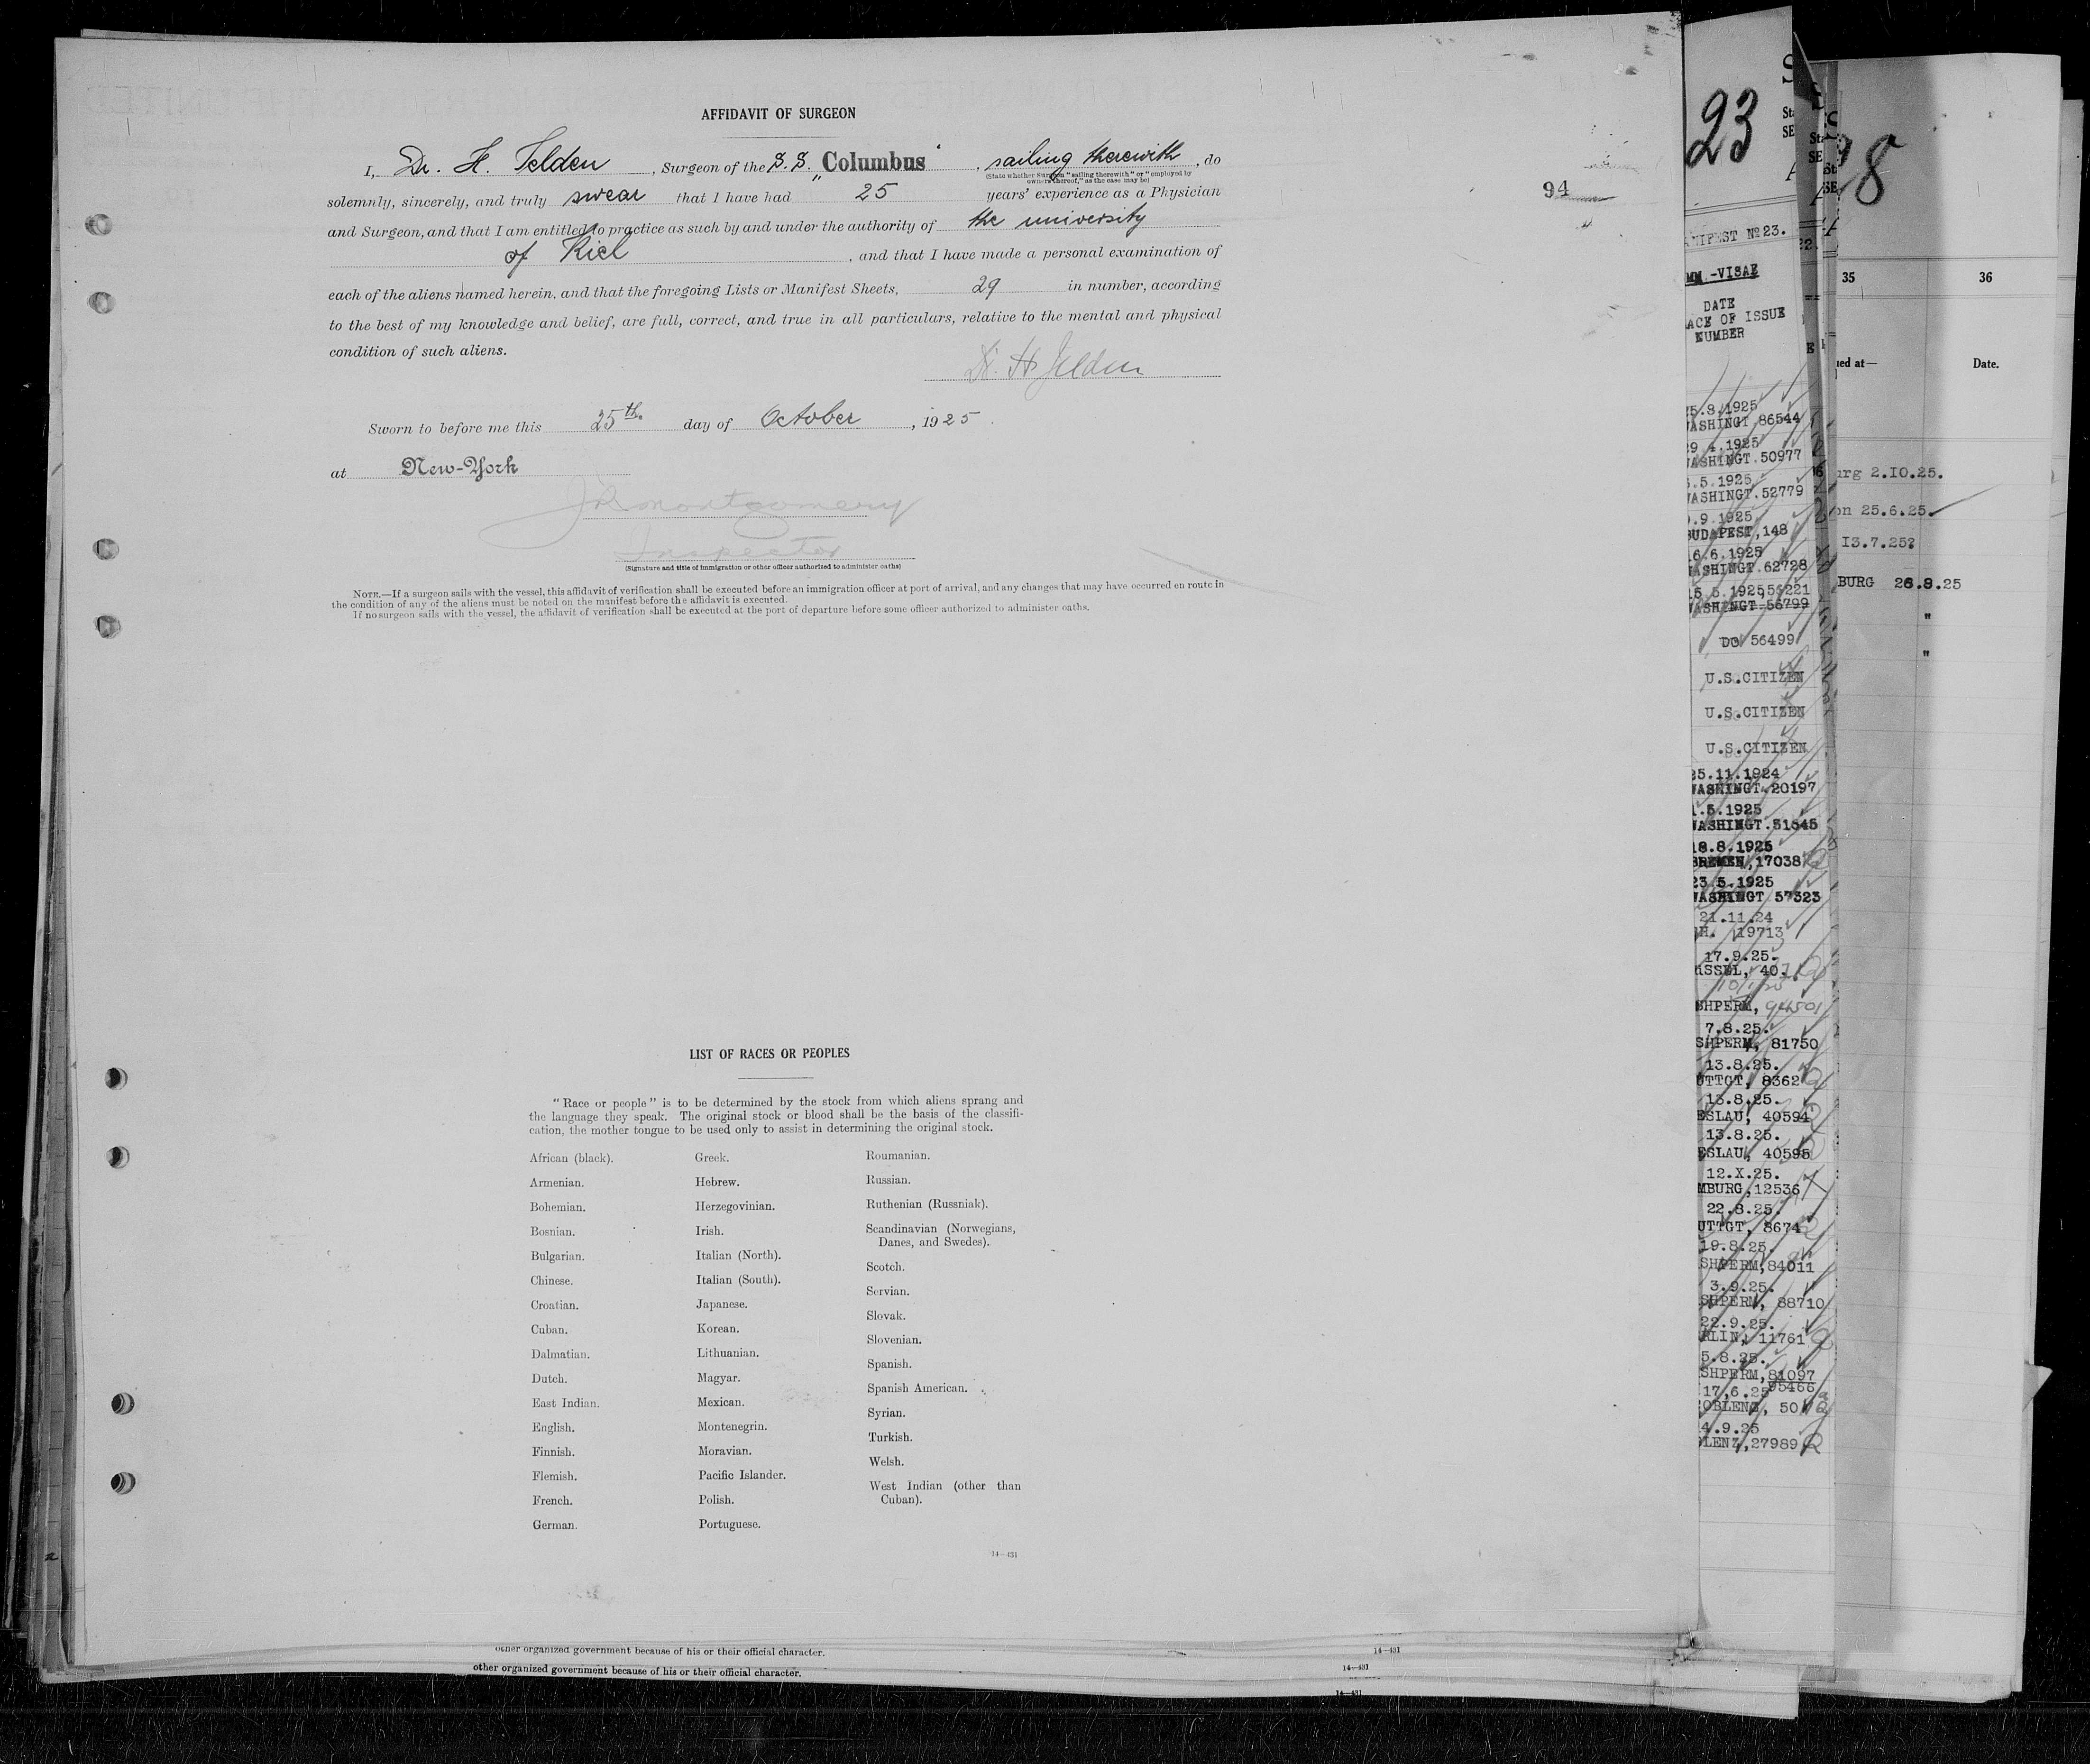 AFFIDAVIT OF SURGEON
I, Dr. H. Felden, Surgeon of the S.S. „Columbus“, sailing therewith, do
(State whether Surgeon "sailing therewith" or "employed by
owners thereof," as the case may be)
solemnly, sincerely, and truly swear that I have had 25 years' experience as a Physician
and Surgeon, and that I am entitled to practice as such by and under the authority of the university
of Kiel, and that I have made a personal examination of
each of the aliens named herein, and that the foregoing Lists or Manifest Sheets, 29 in number, according
to the best of my knowledge and belief, are full, correct, and true in all particulars, relative to the mental and physical
condition of such aliens.
Dr. H. Felden
Sworn to before me this 25th. day of October, 1925.
at New-York
J R Montgomery
Inspector
(Signature and title of immigration or other officer authorized to administer oaths)
NOTE.—If a surgeon sails with the vessel, this affidavit of verification shall be executed before an immigration officer at port of arrival, and any changes that may have occurred en route in
the condition of any of the aliens must be noted on the manifest before the affidavit is executed.
If no surgeon sails with the vessel, the affidavit of verification shall be executed at the port of departure before some officer authorized to administer oaths.
94
LIST OF RACES OR PEOPLES
"Race or people" is to be determined by the stock from which aliens sprang and
the language they speak. The original stock or blood shall be the basis of the classifi-
cation, the mother tongue to be used only to assist in determining the original stock.
African (black).
Armenian.
Bohemian.
Bosnian.
Bulgarian.
Chinese.
Croatian.
Cuban.
Dalmatian.
Dutch.
East Indian.
English.
Finnish.
Flemish.
French.
German.
Greek.
Hebrew.
Herzegovinian.
Irish.
Italian (North).
Italian (South).
Japanese.
Korean.
Lithuanian.
Magyar.
Mexican.
Montenegrin.
Moravian.
Pacific Islander.
Polish.
Portuguese.
Roumanian.
Russian.
Ruthenian (Russniak).
Scandinavian (Norwegians,
Danes, and Swedes).
Scotch.
Servian.
Slovak.
Slovenian.
Spanish.
Spanish American.
Syrian.
Turkish.
Welsh.
West Indian (other than
Cuban).
14—431
other organized government because of his or their official character.
14—431
other organized government because of his or their official character.
14—431
14—431
23
ANIFEST No 23.
MM.-VISAE
DATE
ACE OF ISSUE
NUMBER
5.8.1925
WASHINGT.86544
29 4.1925
WASHINGT.50977
.5.1925
WASHINGT.52779
.9.1925
BUDAPEST,148
6.6.1925
WASHINGT.62728
5 5.1925,53221
WASHINGT.56799
DO 56499
U.S.CITIZEN
U.S.CITIZEN
U.S.CITIZEN
25.11.1924
WASHINGT.20197
1.5.1925
WASHINGT.51545
18.8.1925
BREMEN,17038
23.5.1925
WASHINGT 57323
21.11.24
H. 19713
17.9.25.
USSEL, 40.
SHPERM, 94501
7.8.25.
SHPERM, 81750
13.8.25.
UTTGT, 8362
13.8.25.
ESLAU, 40594
13.8.25.
ESLAU, 40595
12.X.25.
MBURG,12536
22.8.25.
UTTGT, 8674
19.8.25.
SHPERM,84011
3.9.25.
SHPERM, 88710
22.9.25.
RLIN, 11761
5.8.25.
SHPERM,81097
95466
17,6.25
OBLENZ, 50
4.9.25
LENZ,27989
8
35
36
ued at—
Date.
urg 2.IO.25.
on 25.6.25.
I3.7.25?
BURG 26.9.25
"
"